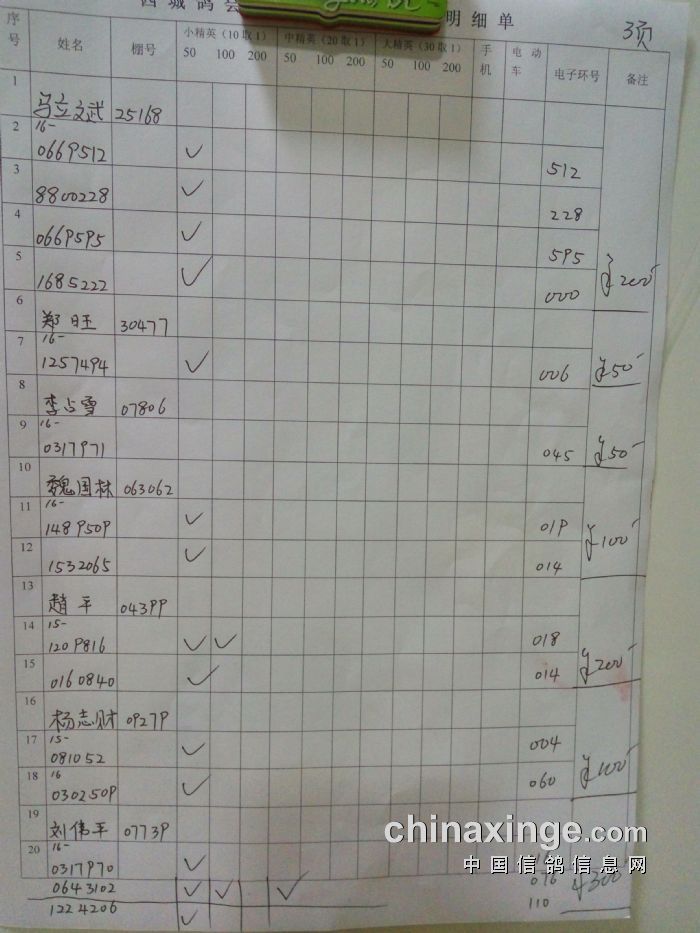 西城鸽会 明细单
3页
序号 姓名 棚号 小精英（10取1） 50 100 200 中精英（20取1） 50 100 200 大精英（30取1） 50 100 200 手机 电动车 电子环号 备注
1 马立文武 25168
2 16-0669512 ✓ 512
3 8800228 ✓ 228
4 0669595 ✓ 595
5 1685222 ✓ 000 ¥200-
6 郑旺 30477
7 16-1257494 ✓ 006 ¥50-
8 李占雪 07806
9 16-0317971 045 ¥50-
10 魏国林 063062
11 16-1489509 ✓ 019
12 1532065 ✓ 014 ¥100-
13 赵平 04399
14 15-1209816 ✓ ✓ 018
15 0160840 ✓ 014 ¥200-
16 杨志财 09279
17 15-081052 ✓ 004
18 16 0302509 ✓ 060 ¥100-
19 刘伟平 07739
20 16-0317970 ✓
0643102 ✓ ✓ ✓ 076 ¥300-
1224206 ✓ 110
chinaxinge.com
中国信鸽信息网